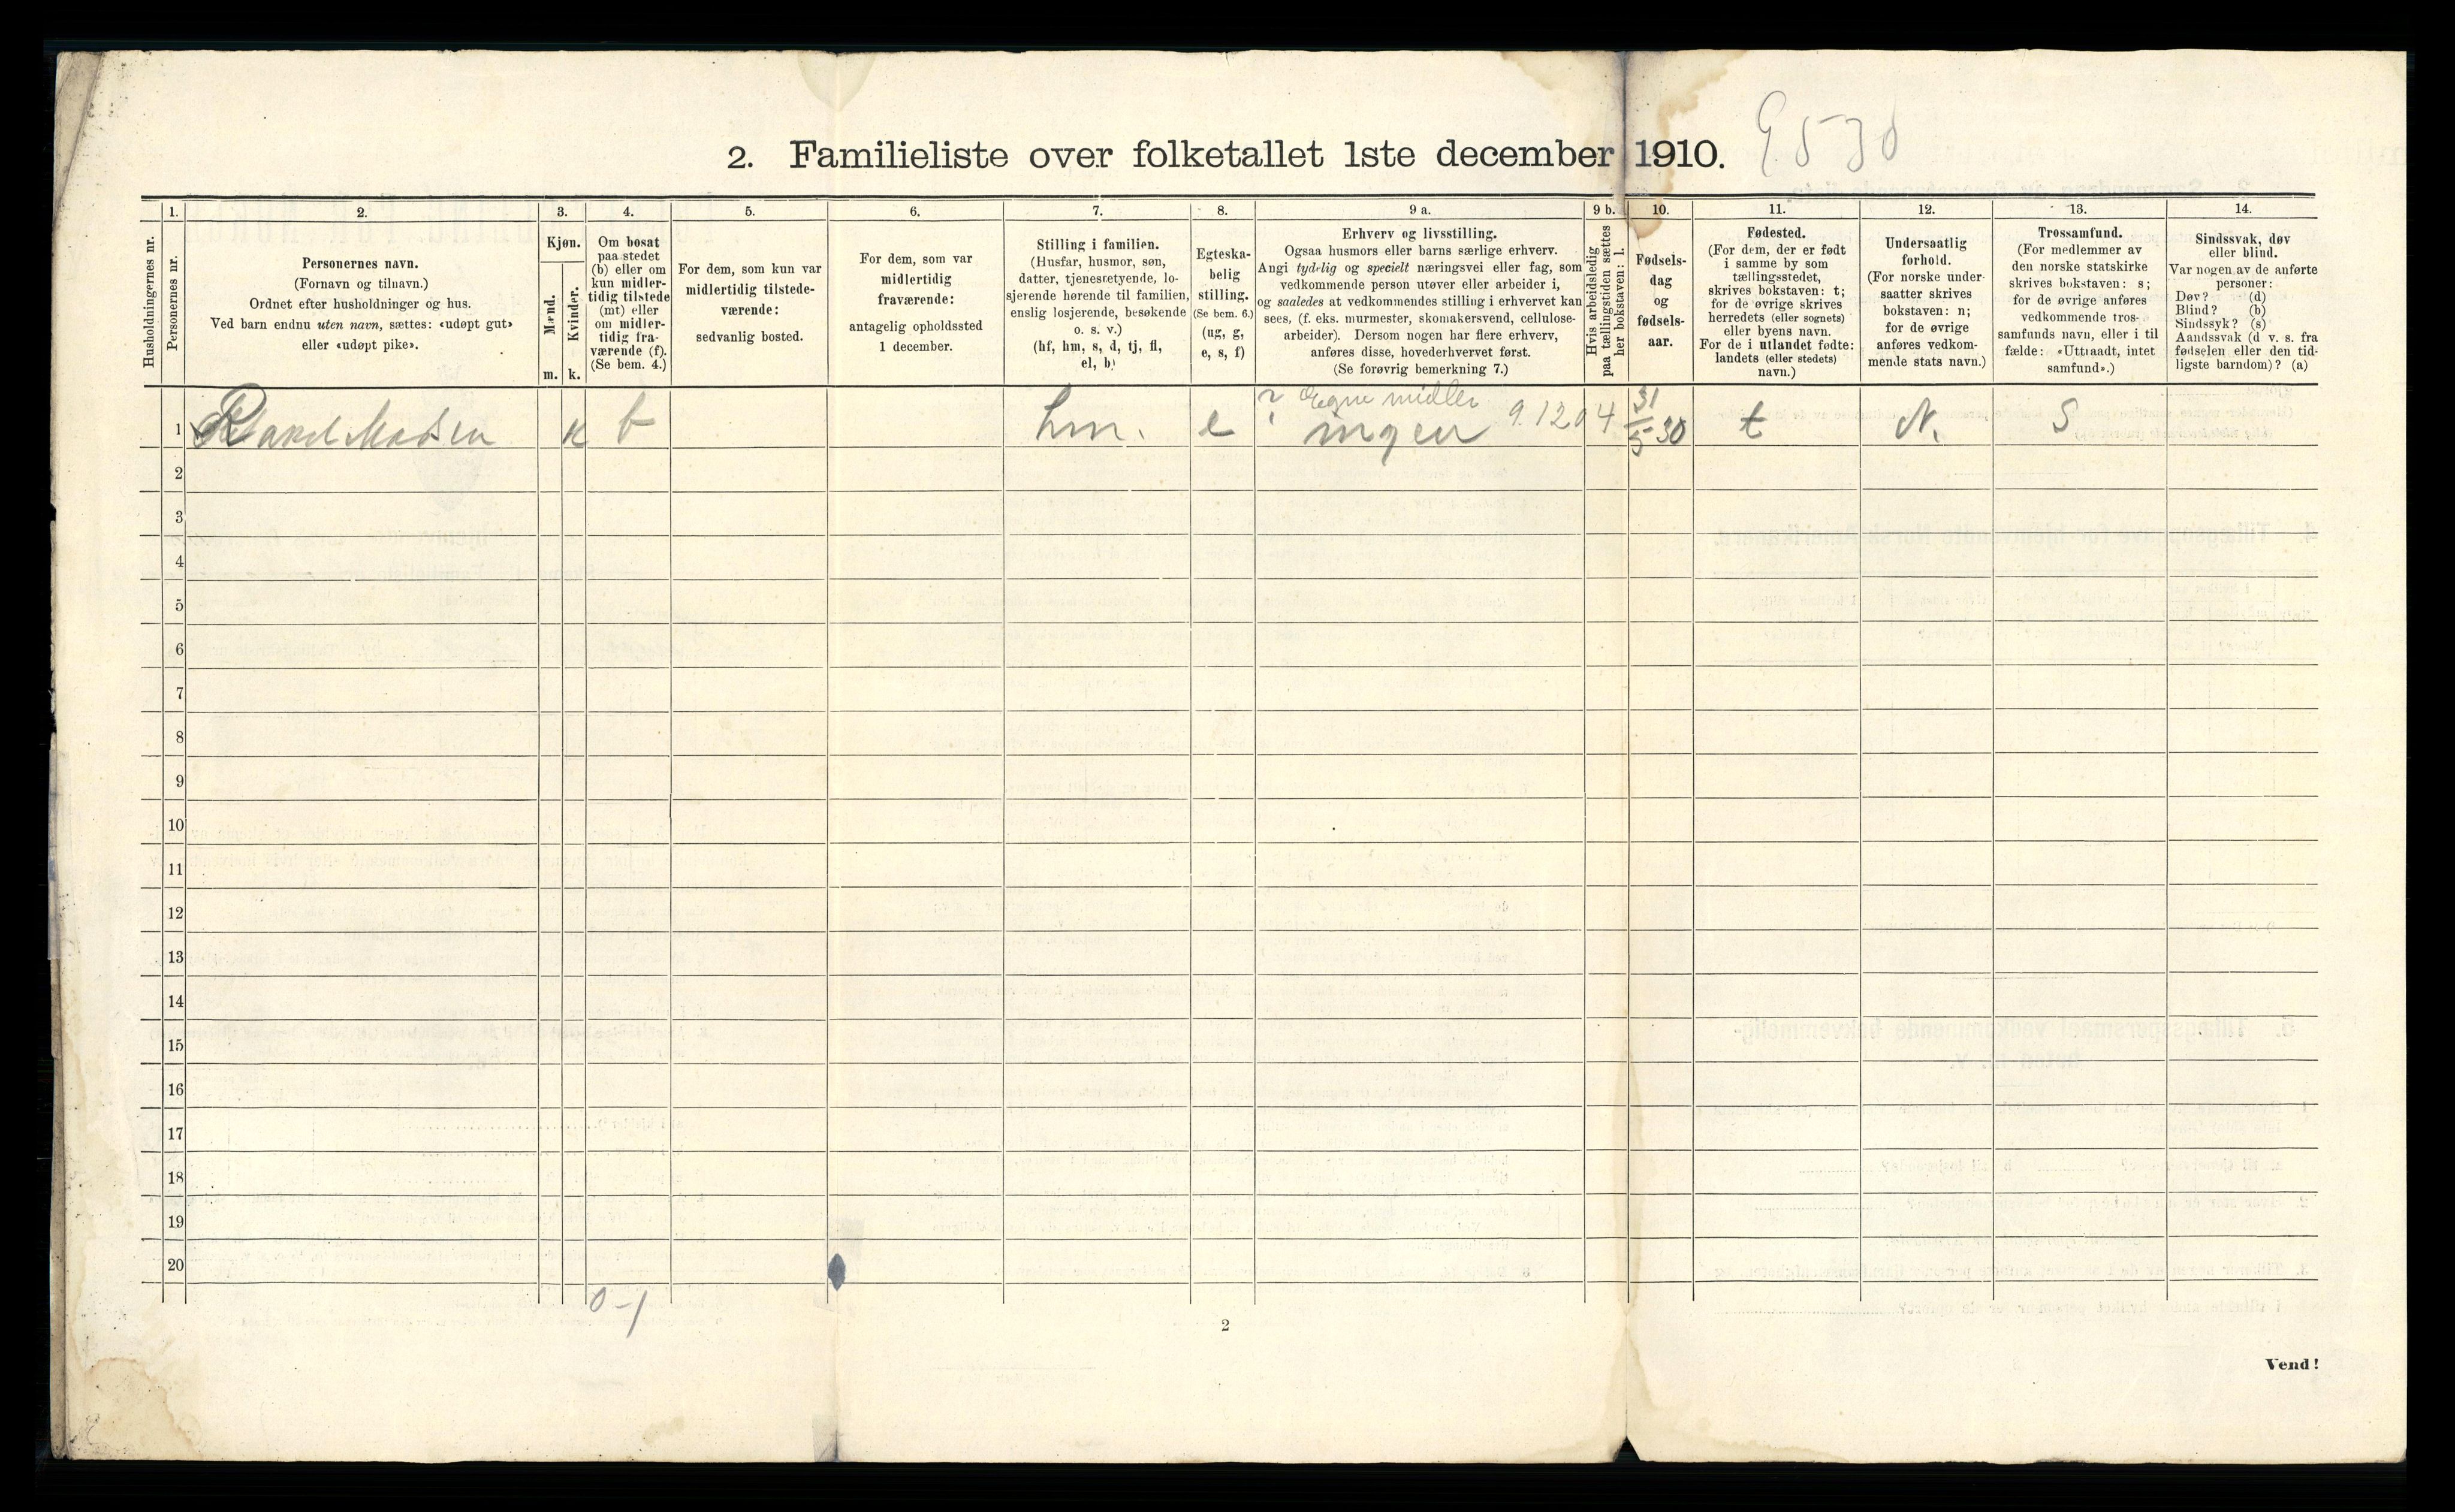 2. Familieliste over folketallet 1ste december 1910.
Husholdningernes nr.
1.
Personernes nr.
2.
Personernes navn.
(Fornavn og tilnavn.)
Ordnet efter husholdninger og hus.
Ved barn endnu uten navn, sættes: «udøpt gut»
eller «udøpt pike».
3.
Kjøn.
Mænd.
Kvinder.
m. k.
4.
Om bosat
paa stedet
(b) eller om
kun midler-
tidig tilstede
(mt) eller
om midler-
tidig fra-
værende (f).
(Se bem. 4.)
5.
For dem, som kun var
midlertidig tilstede-
værende:
sedvanlig bosted.
6.
For dem, som var
midlertidig
fraværende:
antagelig opholdssted
1 december.
7.
Stilling i familien.
(Husfar, husmor, søn,
datter, tjenestetyende, lo-
sjerende hørende til familien,
enslig losjerende, besøkende
o. s. v.)
(hf, hm, s, d, tj, fl,
el, b)
8.
Egteska-
belig
stilling.
(Se bem. 6.)
(ug, g,
e, s, f)
9 a.
Erhverv og livsstilling.
Ogsaa husmors eller barns særlige erhverv.
Angi tydelig og specielt næringsvei eller fag, som
vedkommende person utøver eller arbeider i,
og saaledes at vedkommendes stilling i erhvervet kan
sees, (f. eks. murmester, skomakersvend, cellulose-
arbeider). Dersom nogen har flere erhverv,
anføres disse, hovederhvervet først.
(Se forøvrig bemerkning 7.)
9 b.
Hvis arbeidsledig
paa tællingstiden sættes
her bokstaven: l.
10.
Fødsels-
dag
og
fødsels-
aar.
11.
Fødested.
(For dem, der er født
i samme by som
tællingsstedet,
skrives bokstaven: t;
for de øvrige skrives
herredets (eller sognets)
eller byens navn.
For de i utlandet fødte:
landets (eller stedets)
navn.)
12.
Undersaatlig
forhold.
(For norske under-
saatter skrives
bokstaven: n;
for de øvrige
anføres vedkom-
mende stats navn.)
13.
Trossamfund.
(For medlemmer av
den norske statskirke
skrives bokstaven: s;
for de øvrige anføres
vedkommende tros-
samfunds navn, eller i til
fælde: «Uttraadt, intet
samfund».)
14.
Sindssvak, døv
eller blind.
Var nogen av de anførte
personer:
Døv? (d)
Blind? (b)
Sindssyk? (s)
Aandssvak (d v. s. fra
fødselen eller den tid-
ligste barndom)? (a)
? Egne midler
1 Madsen k b hm. e ingen 9.1204 31/5 30 t N. S
2
3
4
5
6
7
8
9
10
11
12
13
14
15
16
17
18
19
20
0-1
2
Vend!